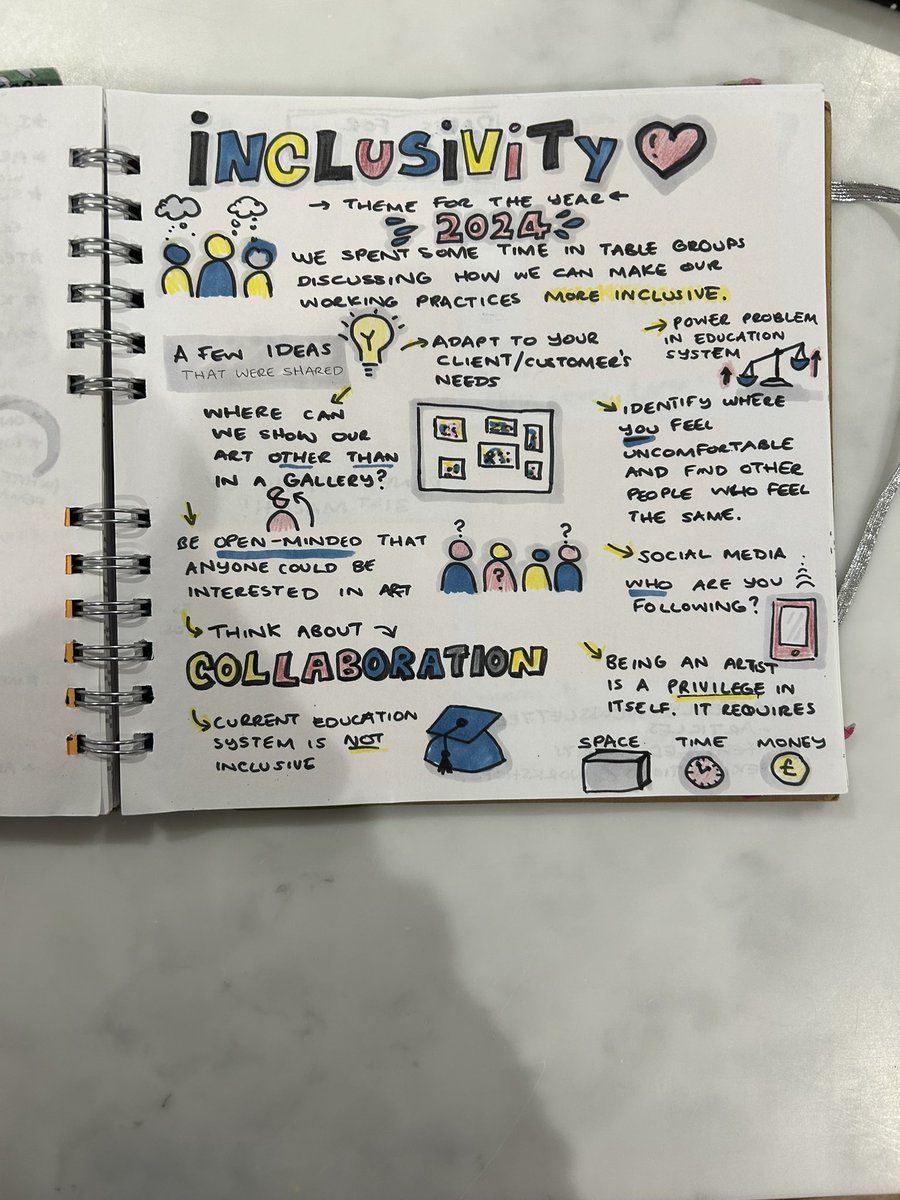 INCLUSIVITY
→ THEME FOR THE YEAR ←
2024
WE SPENT SOME TIME IN TABLE GROUPS
DISCUSSING HOW WE CAN MAKE OUR
WORKING PRACTICES MORE INCLUSIVE.
A FEW IDEAS
THAT WERE SHARED
→ ADAPT TO YOUR
CLIENT/CUSTOMER'S
NEEDS
→ POWER PROBLEM
IN EDUCATION
SYSTEM
WHERE CAN
WE SHOW OUR
ART OTHER THAN
IN A GALLERY?
IDENTIFY WHERE
YOU FEEL
UNCOMFORTABLE
AND FIND OTHER
PEOPLE WHO FEEL
THE SAME.
BE OPEN-MINDED THAT
ANYONE COULD BE
INTERESTED IN ART
? ?
?
SOCIAL MEDIA
WHO ARE YOU
FOLLOWING?
THINK ABOUT
COLLABORATION
BEING AN ARTIST
IS A PRIVILEGE IN
ITSELF. IT REQUIRES
CURRENT EDUCATION
SYSTEM IS NOT
INCLUSIVE
SPACE TIME MONEY
£